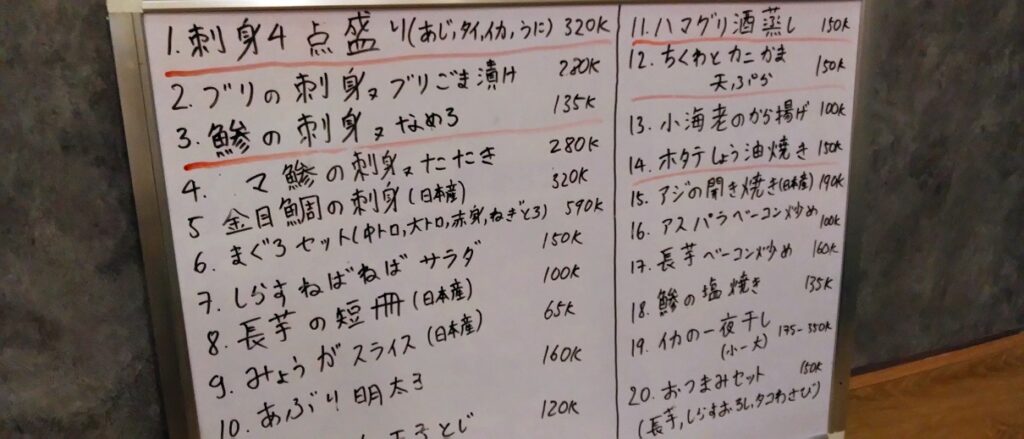 1. 刺身4点盛り(あじ,タイ,イカ,うに) 320K
2. ブリの刺身又ブリごま漬け 280K
3. 鯵の刺身又なめろ 135K
4. マ鯵の刺身又たたき 280K
5 金目鯛の刺身(日本産) 320K
6. まぐろセット(中トロ,大トロ,赤身,ねぎとろ) 590K
7. しらすねばねばサラダ 150K
8. 長芋の短冊(日本産) 100K
9. みょうがスライス(日本産) 65K
10. あぶり明太子 160K
子とじ 120K
11. ハマグリ酒蒸し 150K
12. ちくわとカニかま
天ぷら 150K
13. 小海老のから揚げ 100K
14. ホタテしょう油焼き 150K
15. アジの開き焼き(日本産) 190K
16. アスパラベーコン炒め 100K
17. 長芋ベーコン炒め 160K
18. 鯵の塩焼き 135K
19. イカの一夜干し
(小-大) 175-350K
20. おつまみセット 150K
(長芋,しらすおろし,タコわさび)